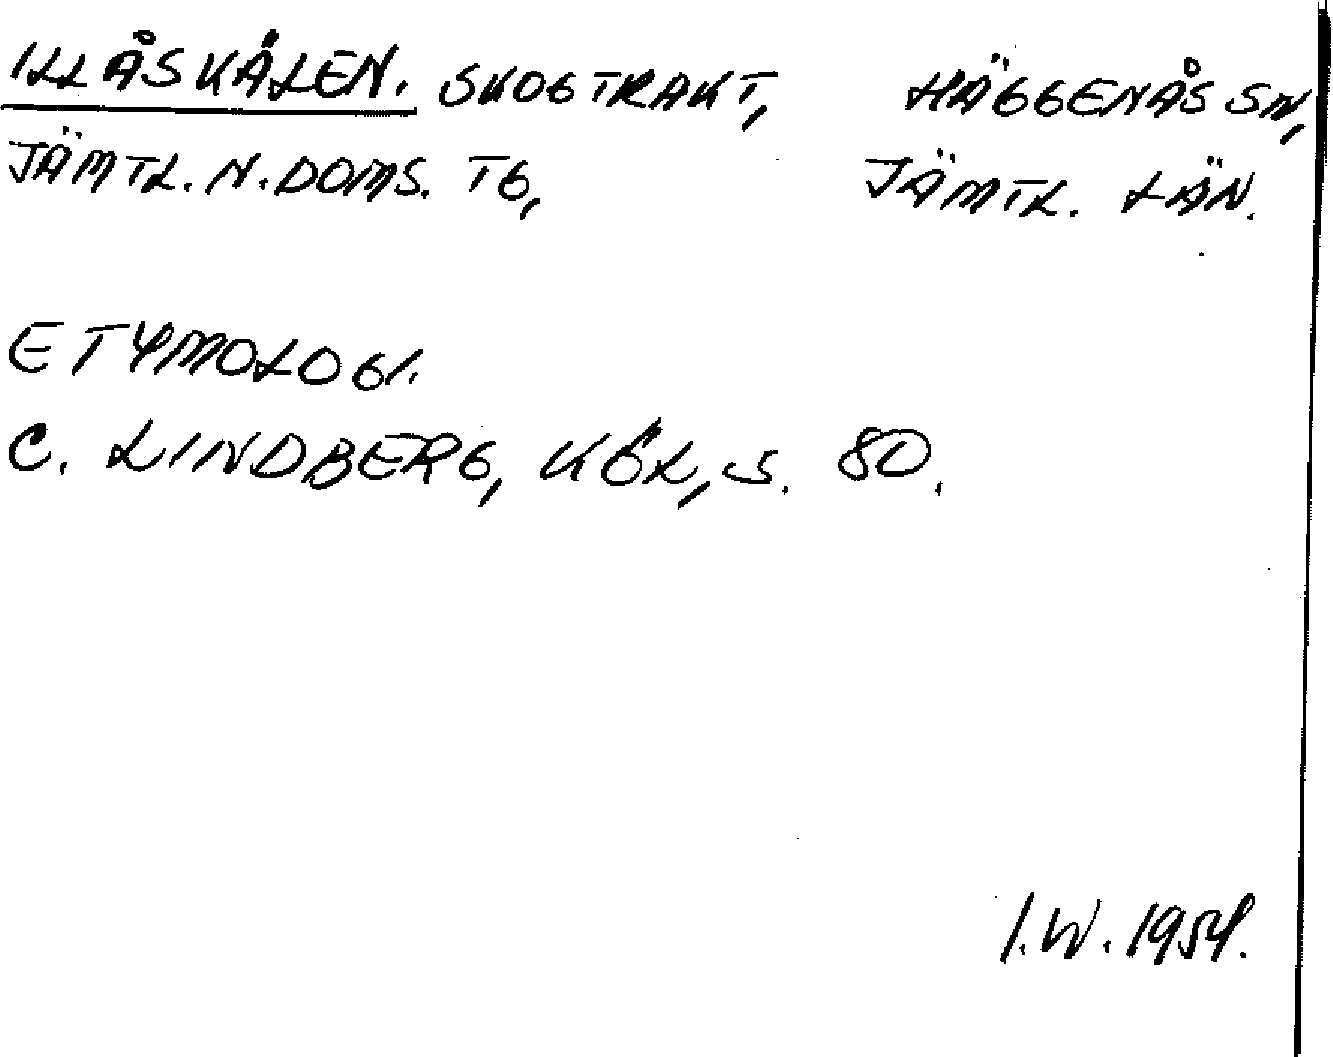 ILLÅSKÅLEN. SKOGTRAKT, HÄGGENÅS SN,
JÄMTL. N. DOMS. TG, JÄMTL. LÄN.
ETYMOLOGI.
C. LINDBERG, KÖL, S. 80.
I.W. 1954.